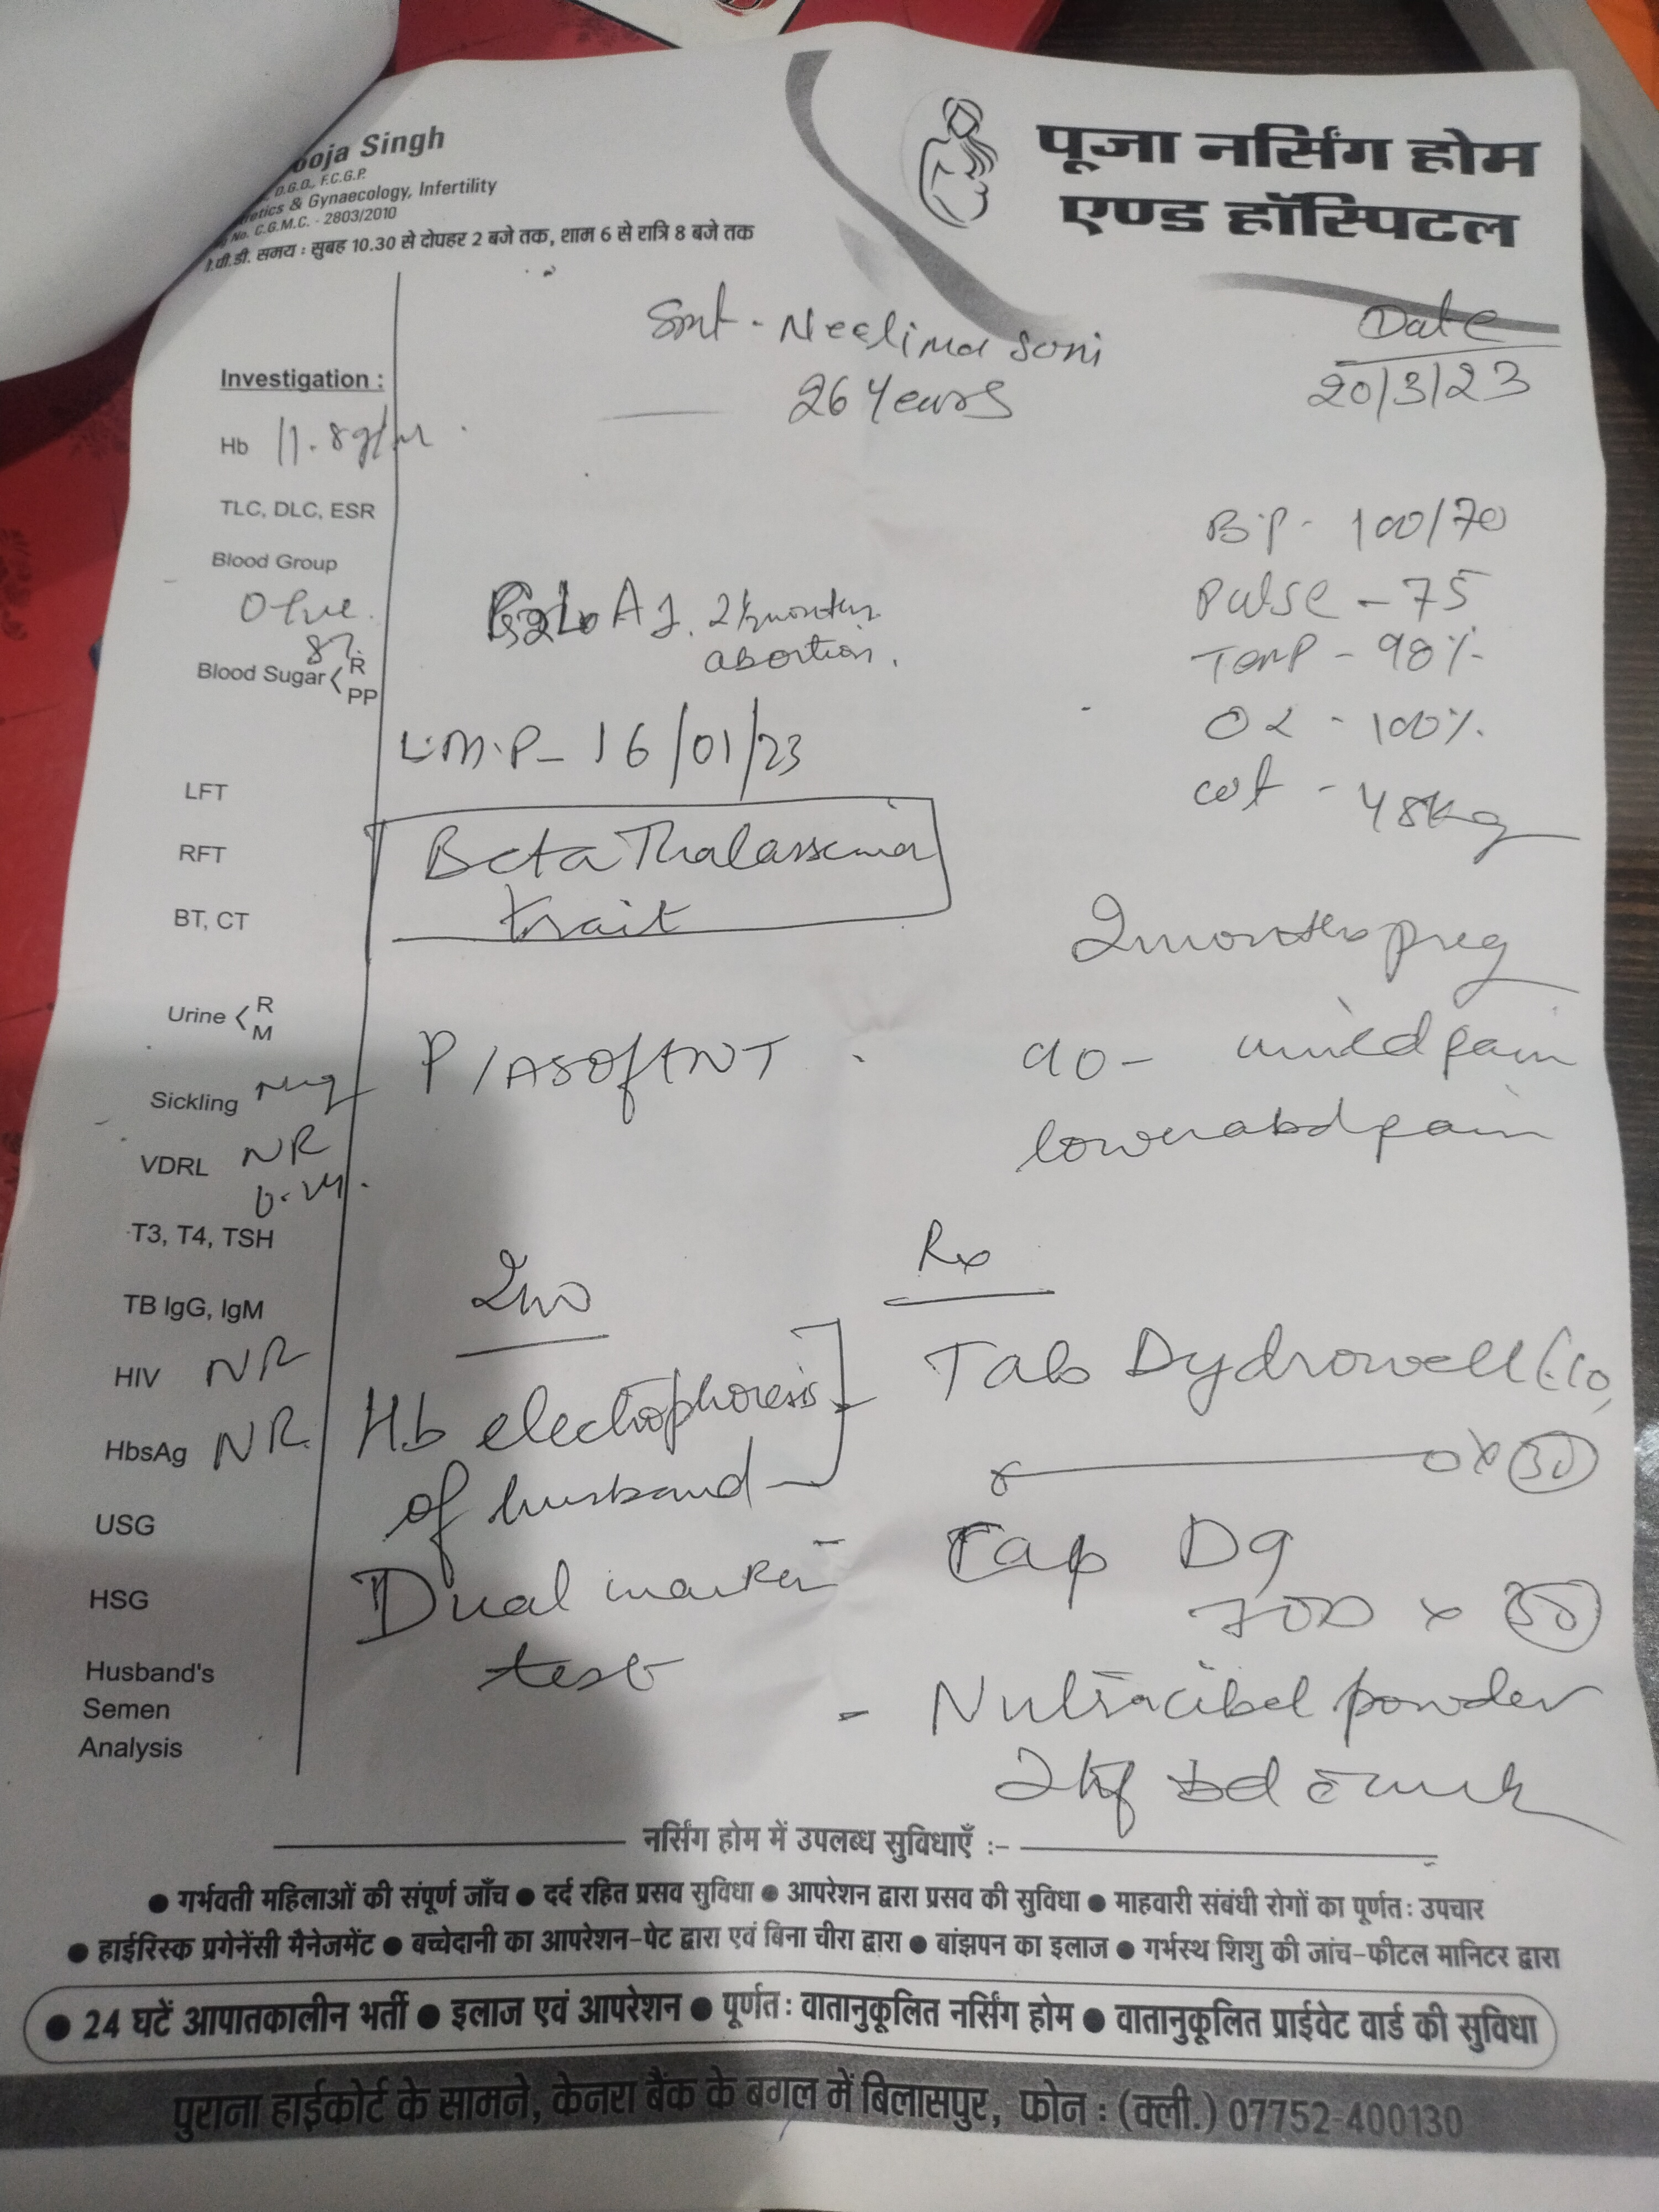 ooja Singh
D.G.O., F.C.G.P.
etics & Gynaecology, Infertility
No. C.G.M.C. - 2803/2010
.पी.डी. समय : सुबह 10.30 से दोपहर 2 बजे तक, शाम 6 से रात्रि 8 बजे तक
पूजा नर्सिंग होम
एण्ड हॉस्पिटल
Smt - Neelima Soni
26 Years
Date
20/3/23
Investigation :
Hb 11.8 g/
TLC, DLC, ESR
Blood Group
O +ve.
87.
Blood Sugar < R
PP
LFT
RFT
BT, CT
Urine < R
M
Sickling neg
VDRL NR
T3, T4, TSH
TB IgG, IgM
HIV NR
HbsAg NR
USG
HSG
Husband's
Semen
Analysis
B.P - 100/70
Pulse - 75
Temp - 98%
O2 - 100%
wt - 48kg
A1. 2½ months
abortion.
L.M.P - 16/01/23
Beta Thalassemia
trait
2 months preg
P/A SOft NT
c/o - mild pain
lower abd pain
Inv
Hb electophoresis
of husband
Dual marker
test
Rx
Tab Dydrowell (10
x 30
Cap D9
x 30
- powder
2 bd c milk
नर्सिंग होम में उपलब्ध सुविधाएँ :-
● गर्भवती महिलाओं की संपूर्ण जाँच ● दर्द रहित प्रसव सुविधा ● आपरेशन द्वारा प्रसव की सुविधा ● माहवारी संबंधी रोगों का पूर्णतः उपचार
● हाईरिस्क प्रगेनेंसी मैनेजमेंट ● बच्चेदानी का आपरेशन-पेट द्वारा एवं बिना चीरा द्वारा ● बांझपन का इलाज ● गर्भस्थ शिशु की जांच-फीटल मानिटर द्वारा
● 24 घटें आपातकालीन भर्ती ● इलाज एवं आपरेशन ● पूर्णतः वातानुकूलित नर्सिंग होम ● वातानुकूलित प्राईवेट वार्ड की सुविधा
पुराना हाईकोर्ट के सामने, केनरा बैंक के बगल में बिलासपुर, फोन : (क्ली.) 07752-400130